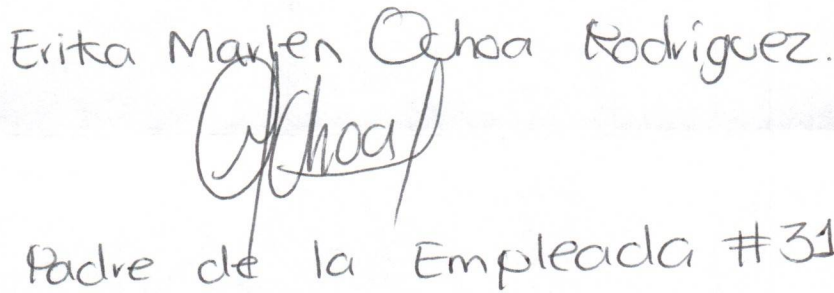 Erika Marlen Ochoa Rodriguez.
Ochoa
Padre de la Empleada #31